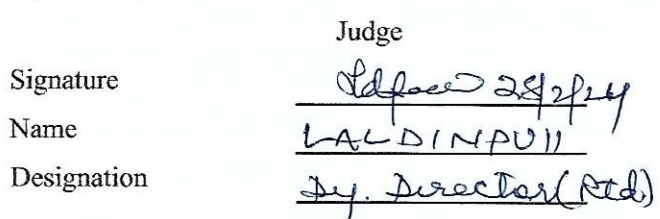 Judge
Signature 28/2/24
Name LALDINPUII
Designation Dy. Director (Rtd)